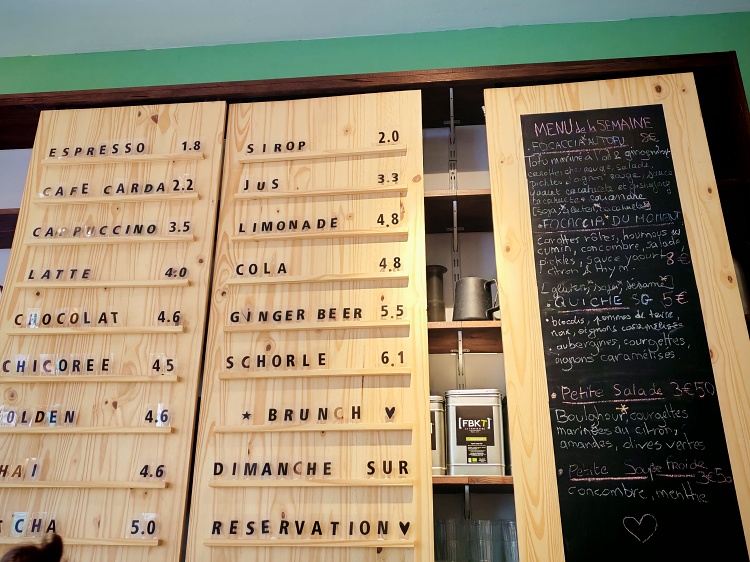 ESPRESSO 1.8
CAFE CARDA 2.2
CAPPUCCINO 3.5
LATTE 4.0
CHOCOLAT 4.6
CHICOREE 45
OLDEN 4.6
HAI 4.6
TCHA 5.0
SIROP 2.0
JUS 3.3
LIMONADE 4.8
COLA 4.8
GINGER BEER 5.5
SCHORLE 6.1
★ BRUNCH ♥
DIMANCHE SUR
RESERVATION ♥
[FBKT]
MENU de la SEMAINE
• FOCACCIA AU TOFU
Tofu mariné à l'ail & gingembre
carottes rouges, salade
pickles d'oignon rouge, sauce
yaourt
• FOCACCIA DU MOMENT
carottes rôties, houmous au
cumin, concombre, salade
pickles, sauce yaourt
citron & thym. 8€
(gluten, soja, sésame)
• QUICHE SG 5€
• brocolis, pommes de terre,
noix, oignons caramélisés
• aubergines, courgettes,
oignons caramélisés
• Petite Salade 3€50
Boulgour, courgettes
marinées au citron,
amandes, olives vertes
• Petite Soupe froide 3€50
concombre, menthe